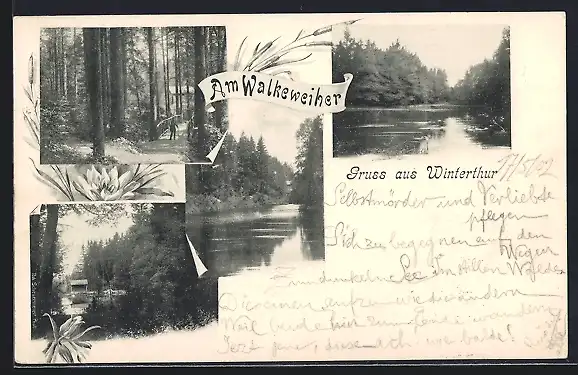 Am Walkeweiher
Gruss aus Winterthur
17/5/02
Selbstmörder und Verliebte
pflegen
Sich zu begegnen auf den
Wegen
Zum dunkeln See im stillen Walde
Die einen wie die andern
Weil beide hin zum wandern
Jetzt jene, diese ach balde!